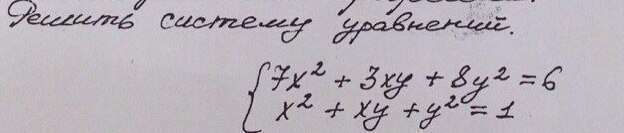 Решить систему уравнений.
7x² + 3xy + 8y² = 6
x² + xy + y² = 1